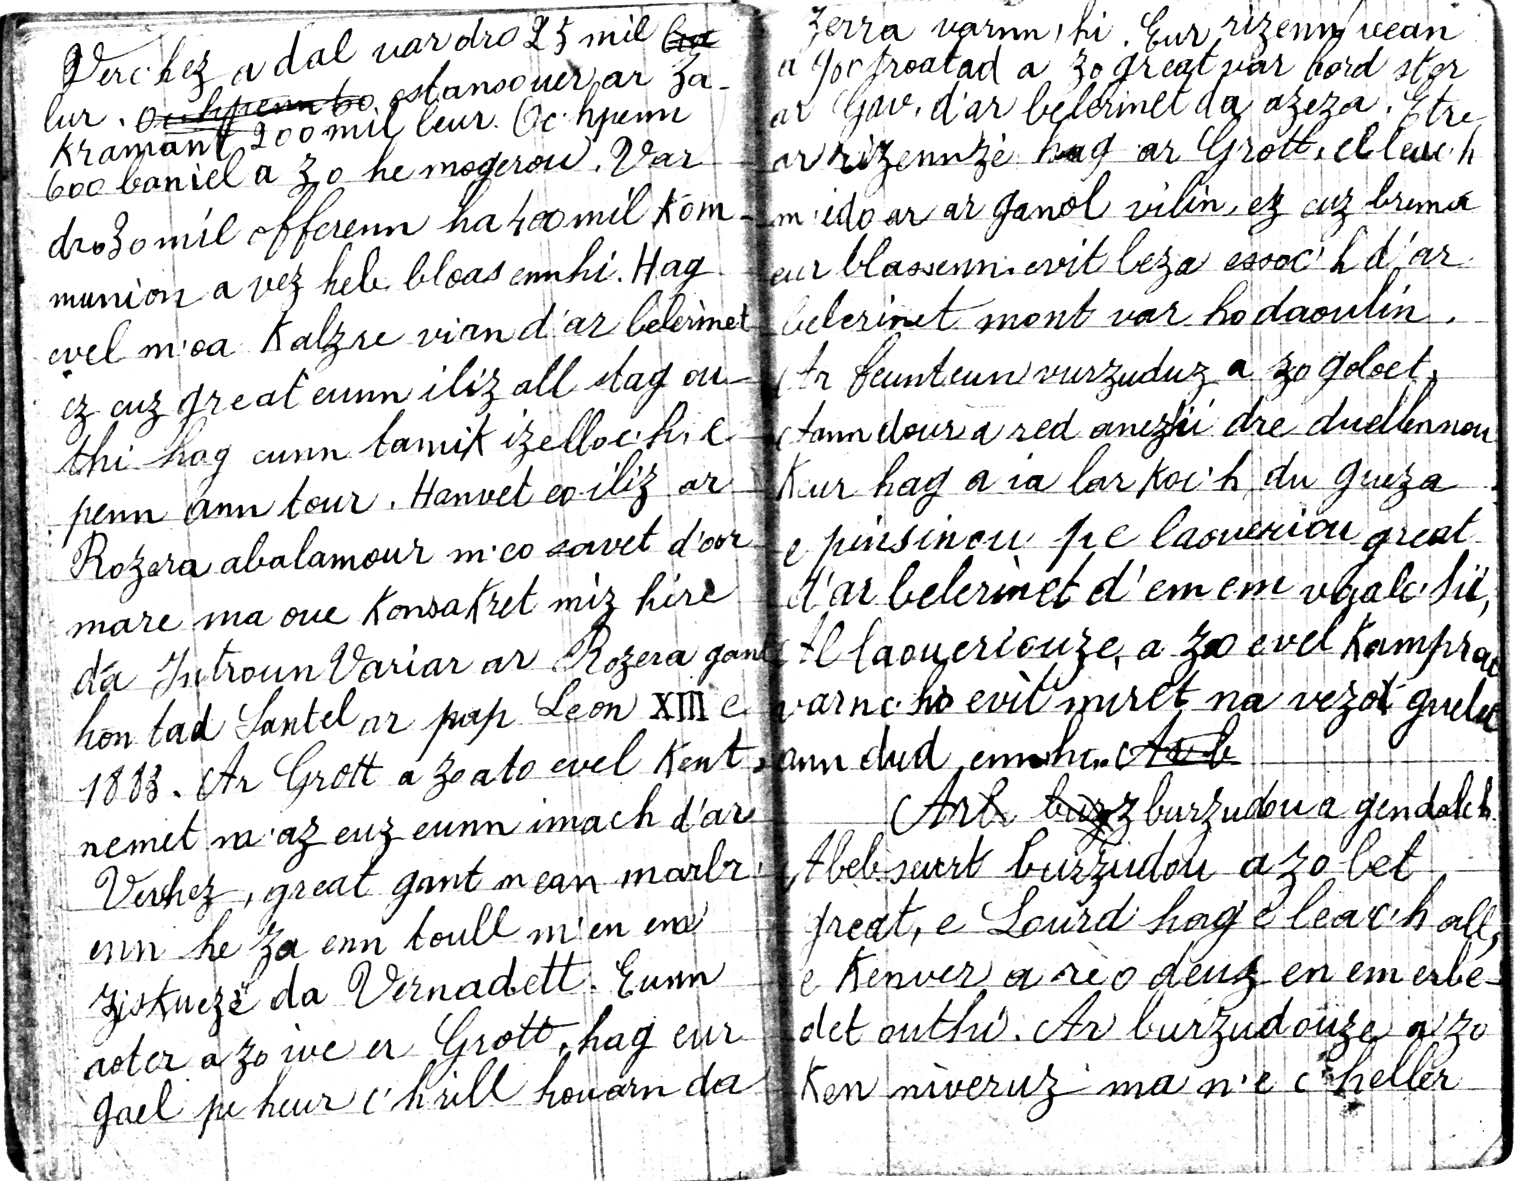 Verc'hez a dal var dro 25 mil
lur. ostansouer ar Za-
kramant 200 mil leur. Oc'hpenn
600 baniel a zo he mogerou. Var
dro 30 mil offerenn ha 400 mil Kom-
munion a vez heb bloas ennhi. Hag
evel m'oa Kalz re vian d'ar belerinet
ez euz great eunn iliz all stag ou-
thi hag eunn tamik izelloc'h, e
penn ann tour. Hanvet eo iliz ar
Rozera abalamour m'eo savet d'oor
mare ma oue Konsakret miz hire
da Introun Varia ar Rozera gant
hon tad Santel ar pap Leon XIII e
1883. Ar Grott a zo ato evel Kent,
nemet m'az euz eunn imach d'ar
Verhez, great gant mean marbr
enn he za enn toull m'en em
ziskueze da Vernadett. Eunn
aoter a zo ive er Grott, hag eur
gael pe heur c'hrill houarn da
zerra varnn,hi. Eur rizenn vean
a 900 troatad a zo great var bord ster
ar Gav, d'ar belerinet da azeza. Etre
ar rizennze hag ar Grott, el leac'h
m'edo ar ar ganol vilin, ez euz brema
eur blassenn evit beza essoc'h d'ar
belerinet mont var ho daoulin.
Ar feunteun vurzuduz a zo goloet,
Ann dour a red anezhi dre duellennou
Kuir hag a ia lar koc'h du gueza
e pinsinou pe laoueriou great
d'ar belerinet d'em em voalc'hi,
Al laoueriouze, a zo evel Kamprou
varnc'ho evit miret na vezot guelet
ann dud ennhi. Ar b
Ar burzudou a gendalch
A beb seurt burzudou a zo bet
great, e Lourd hag e leac'h all,
e Kenver a re o deuz en em erbe-
det outhi. Ar burzudouze a zo
Ken niveruz ma n'e c'heller